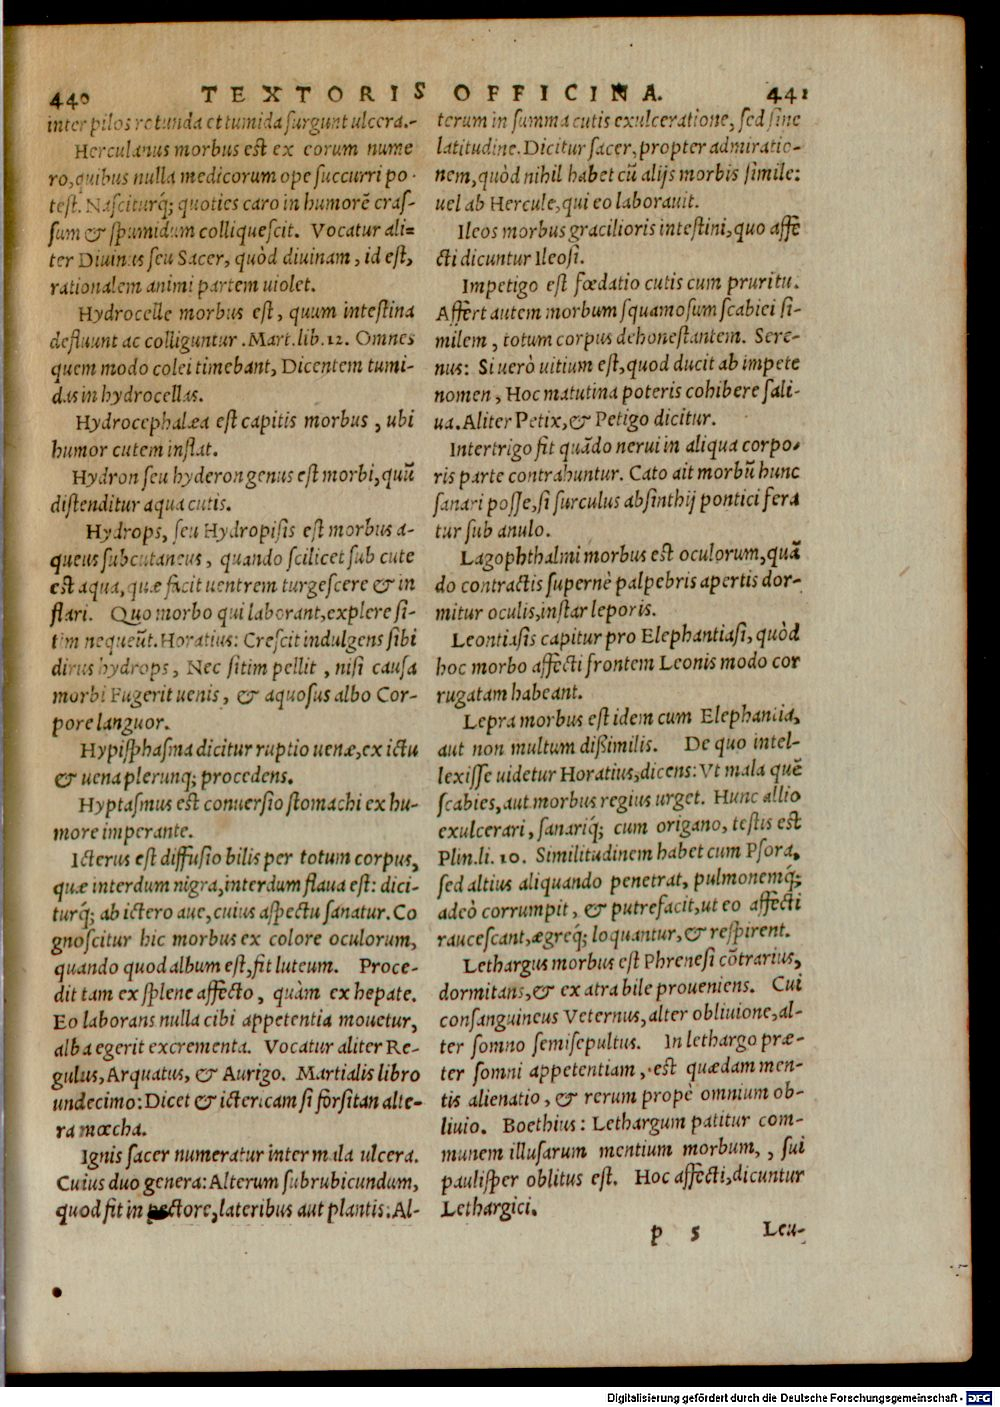 440 TEXTORIS OFFICINA. 441
inter pilos rotunda et tumida surgunt ulcera.
Herculanus morbus est ex eorum nume
ro, quibus nulla medicorum ope succurri po-
test. Nasciturq́; quoties caro in humorẽ cras-
sum & spumidum colliquescit. Vocatur ali=
ter Diuinus seu Sacer, quòd diuinam, id est,
rationalem animi partem uiolet.
Hydrocelle morbus est, quum intestina
defluunt ac colliguntur. Mart. lib. 12. Omnes
quem modo colei timebant, Dicentem tumi-
das in hydrocellas.
Hydrocephalæa est capitis morbus, ubi
humor cutem inflat.
Hydron seu hyderon genus est morbi, quũ
distenditur aqua cutis.
Hydrops, seu Hydropisis est morbus a-
queus subcutaneus, quando scilicet sub cute
est aqua, quæ facit uentrem turgescere & in
flari. Quo morbo qui laborant, explere si-
tim nequeũt. Horatius: Crescit indulgens sibi
dirus hydrops, Nec sitim pellit, nisi causa
morbi Fugerit uenis, & aquosus albo Cor-
pore languor.
Hypisphasma dicitur ruptio uenæ, ex ictu
& uena plerunq; procedens.
Hyptasmus est conuersio stomachi ex hu-
more imperante.
Icterus est diffusio bilis per totum corpus,
quæ interdum nigra, interdum flaua est: dici-
turq́; ab ictero aue, cuius aspectu sanatur. Co
gnoscitur hic morbus ex colore oculorum,
quando quod album est, fit luteum. Proce-
dit tam ex splene affecto, quàm ex hepate.
Eo laborans nulla cibi appetentia mouetur,
alba egerit excrementa. Vocatur aliter Re-
gulus, Arquatus, & Aurigo. Martialis libro
undecimo: Dicet & ictericam si forsitan alte-
ra mœcha.
Ignis sacer numeratur inter mala ulcera.
Cuius duo genera: Alterum subrubicundum,
quod fit in pectore, lateribus aut plantis: Al-
terum in summa cutis exulceratione, sed sine
latitudine. Dicitur sacer, propter admiratio-
nem, quòd nihil habet cũ alijs morbis simile:
uel ab Hercule, qui eo laborauit.
Ileos morbus gracilioris intestini, quo affe
cti dicuntur Ileosi.
Impetigo est fœdatio cutis cum pruritu.
Affert autem morbum squamosum scabiei si-
milem, totum corpus dehonestantem. Sere-
nus: Si uerò uitium est, quod ducit ab impete
nomen, Hoc matutina poteris cohibere sali-
ua. Aliter Petix, & Petigo dicitur.
Intertrigo fit quãdo nerui in aliqua corpo-
ris parte contrahuntur. Cato ait morbũ hunc
sanari posse, si surculus absinthij pontici fera
tur sub anulo.
Lagophthalmi morbus est oculorum, quã
do contractis supernè palpebris apertis dor-
mitur oculis, instar leporis.
Leontiasis capitur pro Elephantiasi, quòd
hoc morbo affecti frontem Leonis modo cor
rugatam habeant.
Lepra morbus est idem cum Elephantia,
aut non multum dißimilis. De quo intel-
lexisse uidetur Horatius, dicens: Vt mala quẽ
scabies, aut morbus regius urget. Hunc allio
exulcerari, sanariq́; cum origano, testis est
Plin. li. 20. Similitudinem habet cum Psora,
sed altius aliquando penetrat, pulmonemq́;
adeò corrumpit, & putrefacit, ut eo affecti
raucescant, ægreq́; loquantur, & respirent.
Lethargus morbus est Phrenesi cõtrarius,
dormitans, & ex atra bile proueniens. Cui
consanguineus Veternus, alter obliuione, al-
ter somno semisepultus. In lethargo præ-
ter somni appetentiam, est quædam men-
tis alienatio, & rerum propè omnium ob-
liuio. Boethius: Lethargum patitur com-
munem illusarum mentium morbum, , sui
paulisper oblitus est. Hoc affecti, dicuntur
Lethargici.
p 5 Leu-
Digitalisierung gefördert durch die Deutsche Forschungsgemeinschaft - DFG